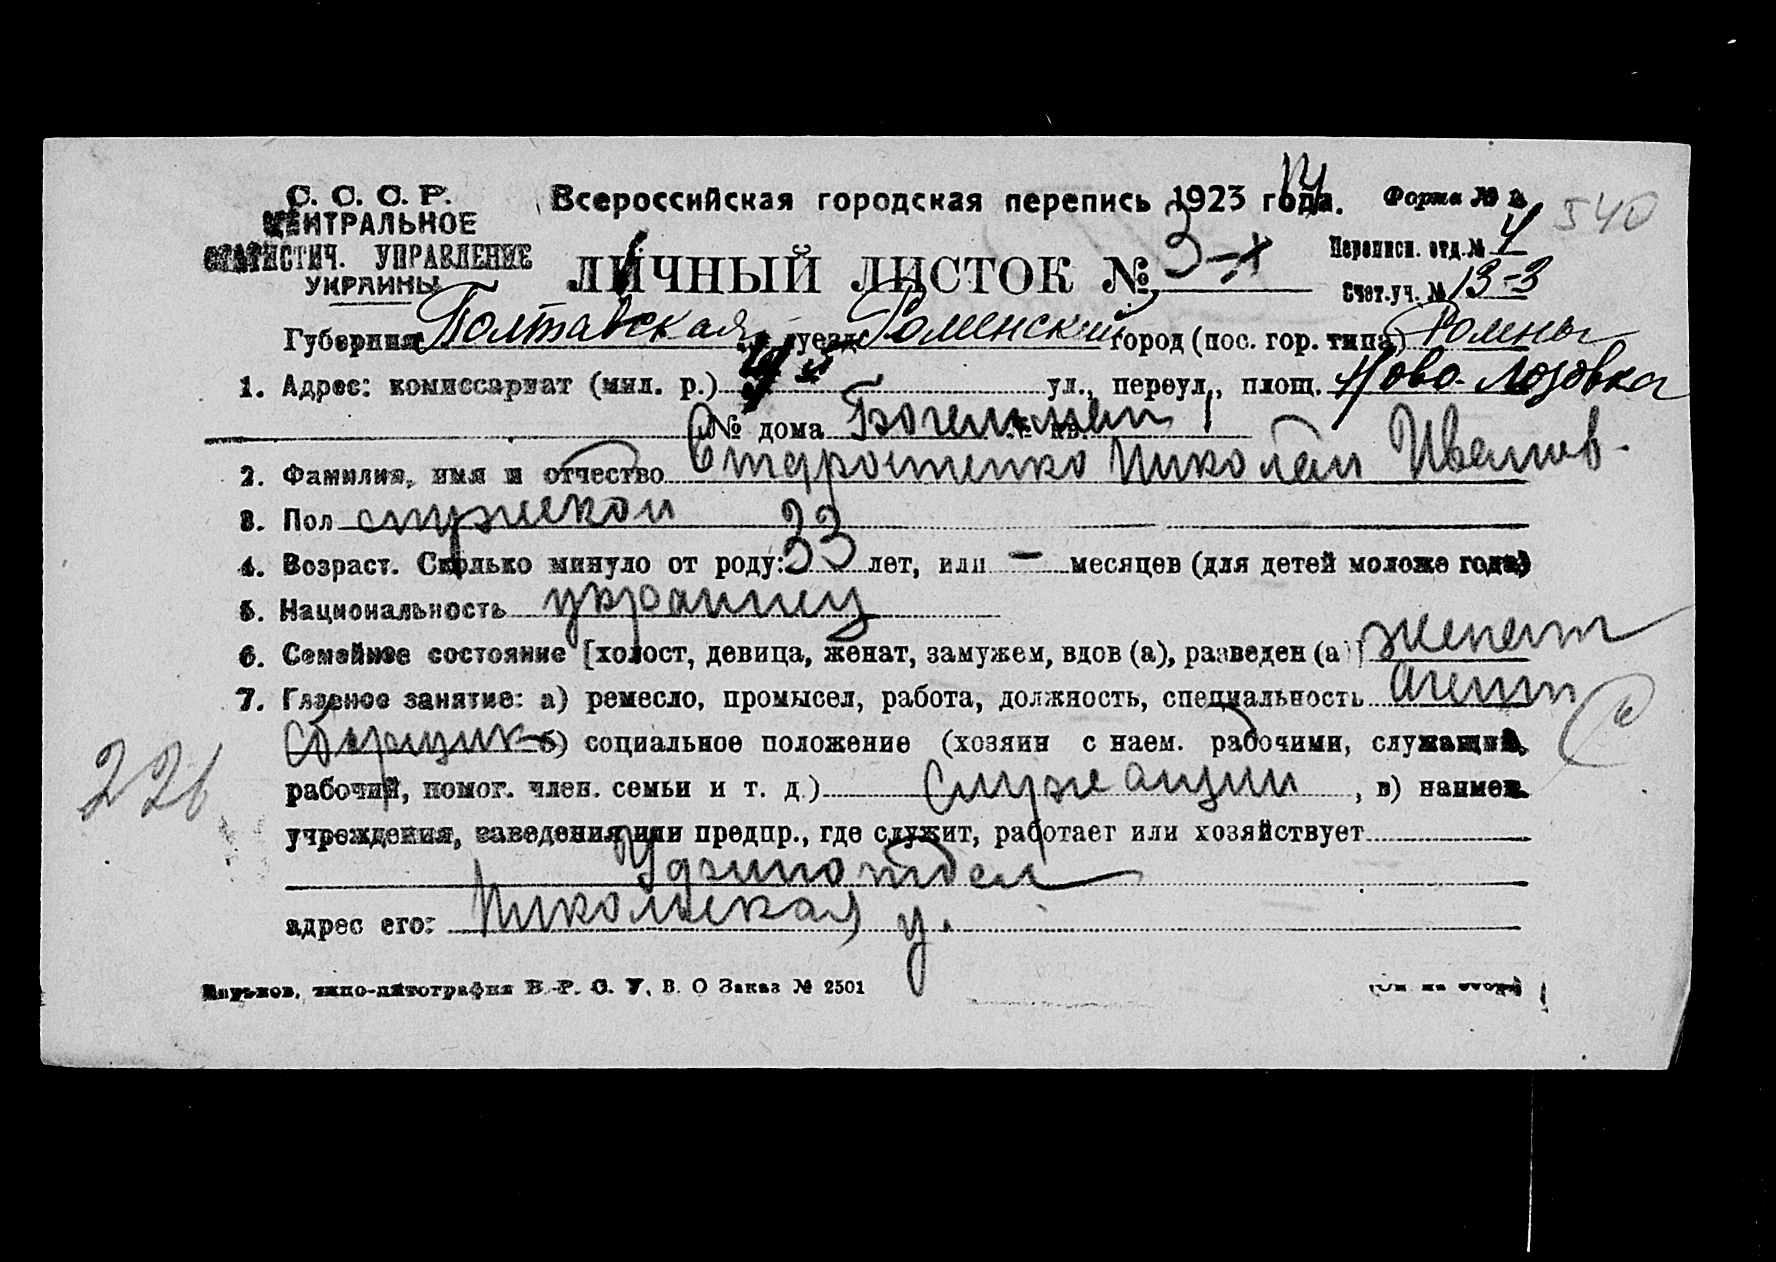 С. С. С. Р.
ЦЕНТРАЛЬНОЕ
СТАТИСТИЧ. УПРАВЛЕНИЕ
УКРАИНЫ
Всероссийская городская перепись 1923 года.
Форма № 2
540
ЛИЧНЫЙ ЛИСТОК № 3-х
Переписн. отд. № 4
Счет. уч. № 13-3
Губерния Полтавская уезд Роменский город (пос. гор. типа) Ромны
1. Адрес: комиссариат (мил. р.) ул., переул., площ. Ново-Лозовка
№ дома № кв. 1
2. Фамилия, имя и отчество Старостенко Николай Иванов.
3. Пол мужской
4. Возраст. Сколько минуло от роду: 33 лет, или — месяцев (для детей моложе года)
5. Национальность украинец
6. Семейное состояние [холост, девица, женат, замужем, вдов (а), разведен (а) женат
7. Главное занятие: а) ремесло, промысел, работа, должность, специальность агент
сборщик б) социальное положение (хозяин с наем. рабочими, служащий,
рабочий, помог. член. семьи и т. д.) служащий, в) наимен.
226
учреждения, заведения или предпр., где служит, работает или хозяйствует
адрес его: Никольская у.
Харьков, типо-литография В. Р. С. У. В. О Заказ № 2501